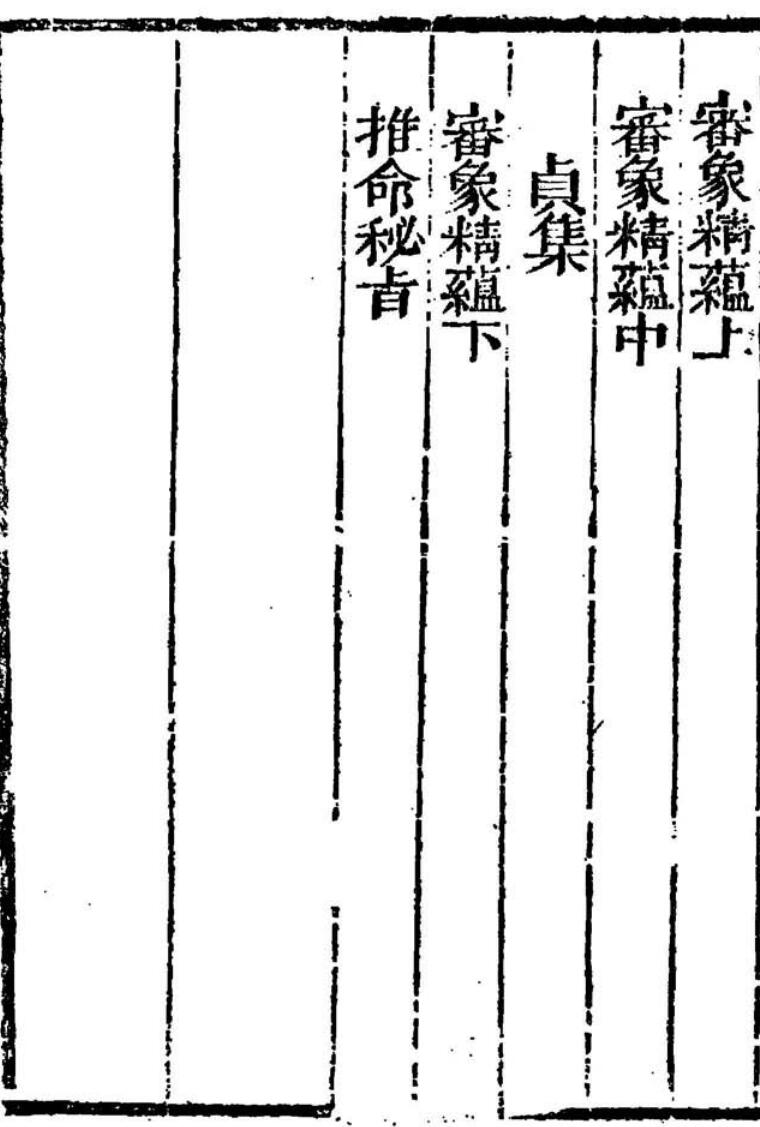 審象精蘊上
審象精蘊中
貞集
審象精蘊下
推命秘㫖